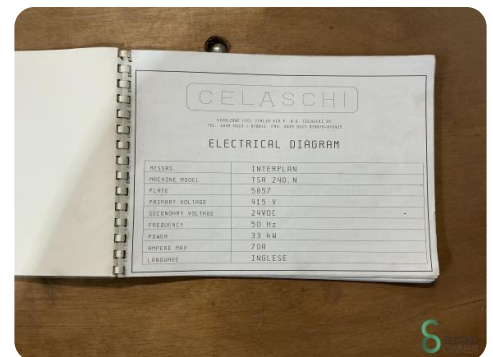 CELASCHI
ELECTRICAL DIAGRAM
MESSRS. INTERPLAN
MACHINE MODEL TSA 240.N
PLATE 5857
PRIMARY VOLTAGE 415 V
SECONDARY VOLTAGE 24VDC
FREQUENCY 50 Hz
POWER 33 kW
AMPERE MAX 70A
LANGUAGE INGLESE